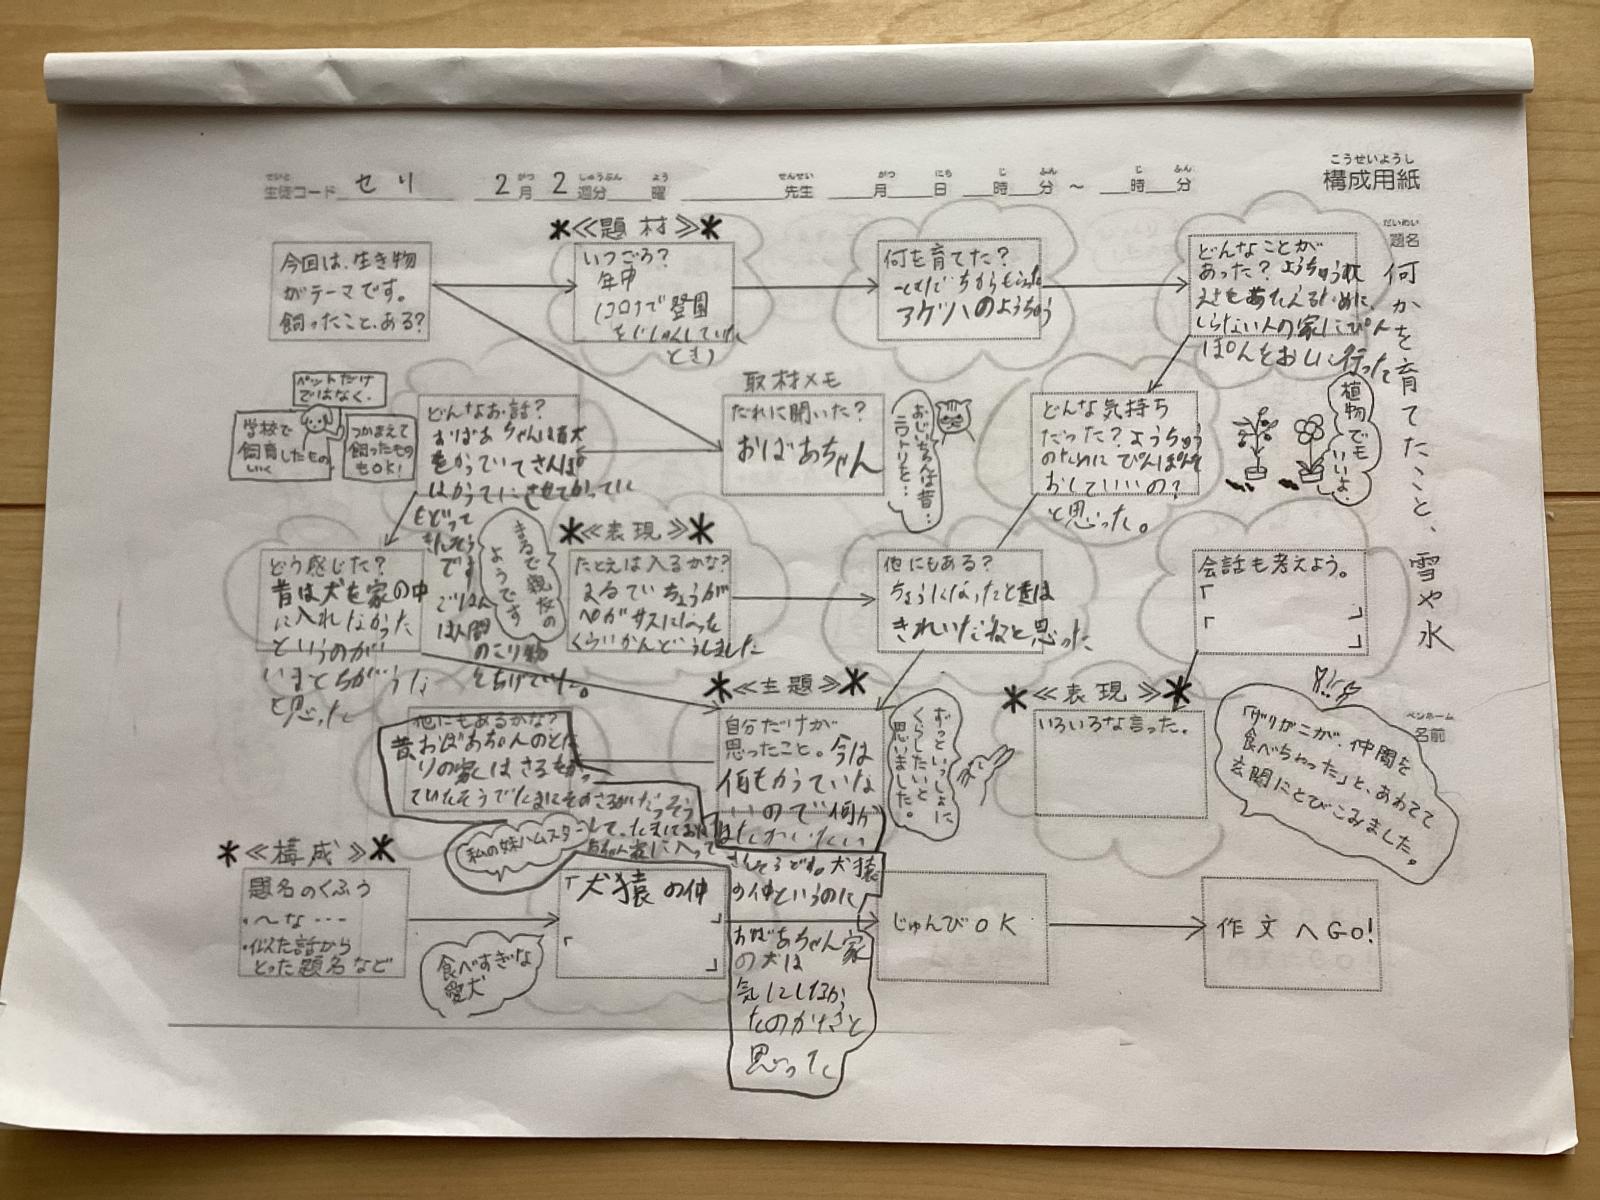 こうせいようし
構成用紙
せいと
生徒コード セリ
がつ しゅうぶん よう
2月2週分 曜
せんせい がつ にち じ ふん じ ふん
先生 月 日 時 分 ～ 時 分
だいめい
題名
何かを育てたこと、雪や氷
ペンネーム
名前
今回は、生き物
がテーマです。
飼ったこと、ある?
*≪題材≫*
いつごろ?
年中
(コロナで登園
とき)
何を育てた?
アゲハのようちゅう
どんなことが
あった? ようちゅうに
えさをあたえるために、
しらない人の家にぴん
ぽんをおしに行った
どんな気持ち
だった? ようちゅう
のためにぴんぽんを
おしていいの?
と思った。
植物でも
いいよ。
取材メモ
だれに聞いた?
おばあちゃん
おじいちゃんは昔…
ニワトリを…
どんなお話?
おばあちゃんは昔犬
をかっていてさんぽ
はかってにさせてかってに
もどって
です
ごはん
は人間
のこり物
ペットだけ
ではなく、
学校で
飼育したもの、
いく
つかまえて
飼ったもの
もOK!
どう感じた?
昔は犬を家の中
に入れなかった
というのが
いまとちがうな
と思った
まるで親友の
ようです
*≪表現≫*
たとえは入るかな?
まるでいちょうが
ペガサスになった
くらいかんどうしました
他にもある?
ちょうになったときは
きれいだねと思った
会話も考えよう。
「
」
「
」
*≪表現≫*
いろいろな言った。
「ザリガニが、仲間を
食べちゃった」と、あわてて
玄関にとびこみました。
*≪主題≫*
自分だけが
思ったこと。今は
何もかっていな
いので何か
ずっといっしょに
くらしたいと
思いました。
他にもあるかな?
昔おばあちゃんのとな
りの家はさるをかっ
ていたそうでたまにそのさるがだっそう
して、たまにおば
あちゃん家に入って
きたそうです。犬猿
の仲というのに
おばあちゃん家
の犬は
気にしなか
たのかなと
思った
私の妹ハムスター
*≪構成≫*
題名のくふう
・～な…
・似た話から
とった題名など
食べすぎな
愛犬
「犬猿の仲
」
「
」
じゅんびOK
作文へGo!